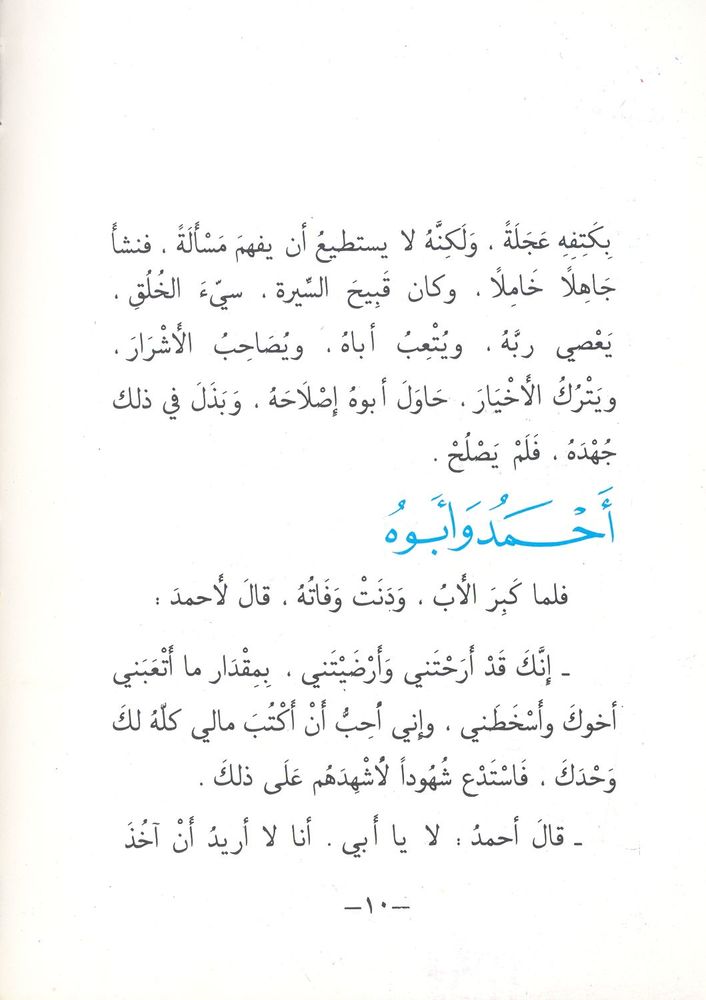 بِكَتِفِهِ عَجَلَةً ، وَلَكِنَّهُ لا يستطيعُ أن يفهمَ مَسْأَلَةً ، فنشأَ
جَاهِلًا خَامِلًا ، وكان قَبِيحَ السِّيرة ، سيّءَ الخُلُقِ ،
يَعْصي ربَّهُ ، ويُتْعِبُ أباهُ ، ويُصَاحِبُ الأَشْرَارَ ،
ويَتْرُكُ الأَخْيَارَ ، حَاوَلَ أبوهُ إِصْلَاحَهُ ، وَبَذَلَ في ذلك
جُهْدَهُ ، فَلَمْ يَصْلُحْ .
أَحْمَدُ وَأَبُوهُ
فلما كَبِرَ الأَبُ ، وَدَنَتْ وَفَاتُهُ ، قالَ لأَحمدَ :
ـ إِنَّكَ قَدْ أَرَحْتَني وَأَرْضَيْتَني ، بِمِقْدَار ما أَتْعَبَني
أخوكَ وأَسْخَطَني ، وإني أُحِبُّ أَنْ أَكْتُبَ مالي كلّهُ لكَ
وَحْدَكَ ، فَاسْتَدْعِ شُهُوداً لأُشْهِدَهُم عَلَى ذلكَ .
ـ قالَ أحمدُ : لا يا أَبي . أنا لا أريدُ أَنْ آخُذَ
—١٠—